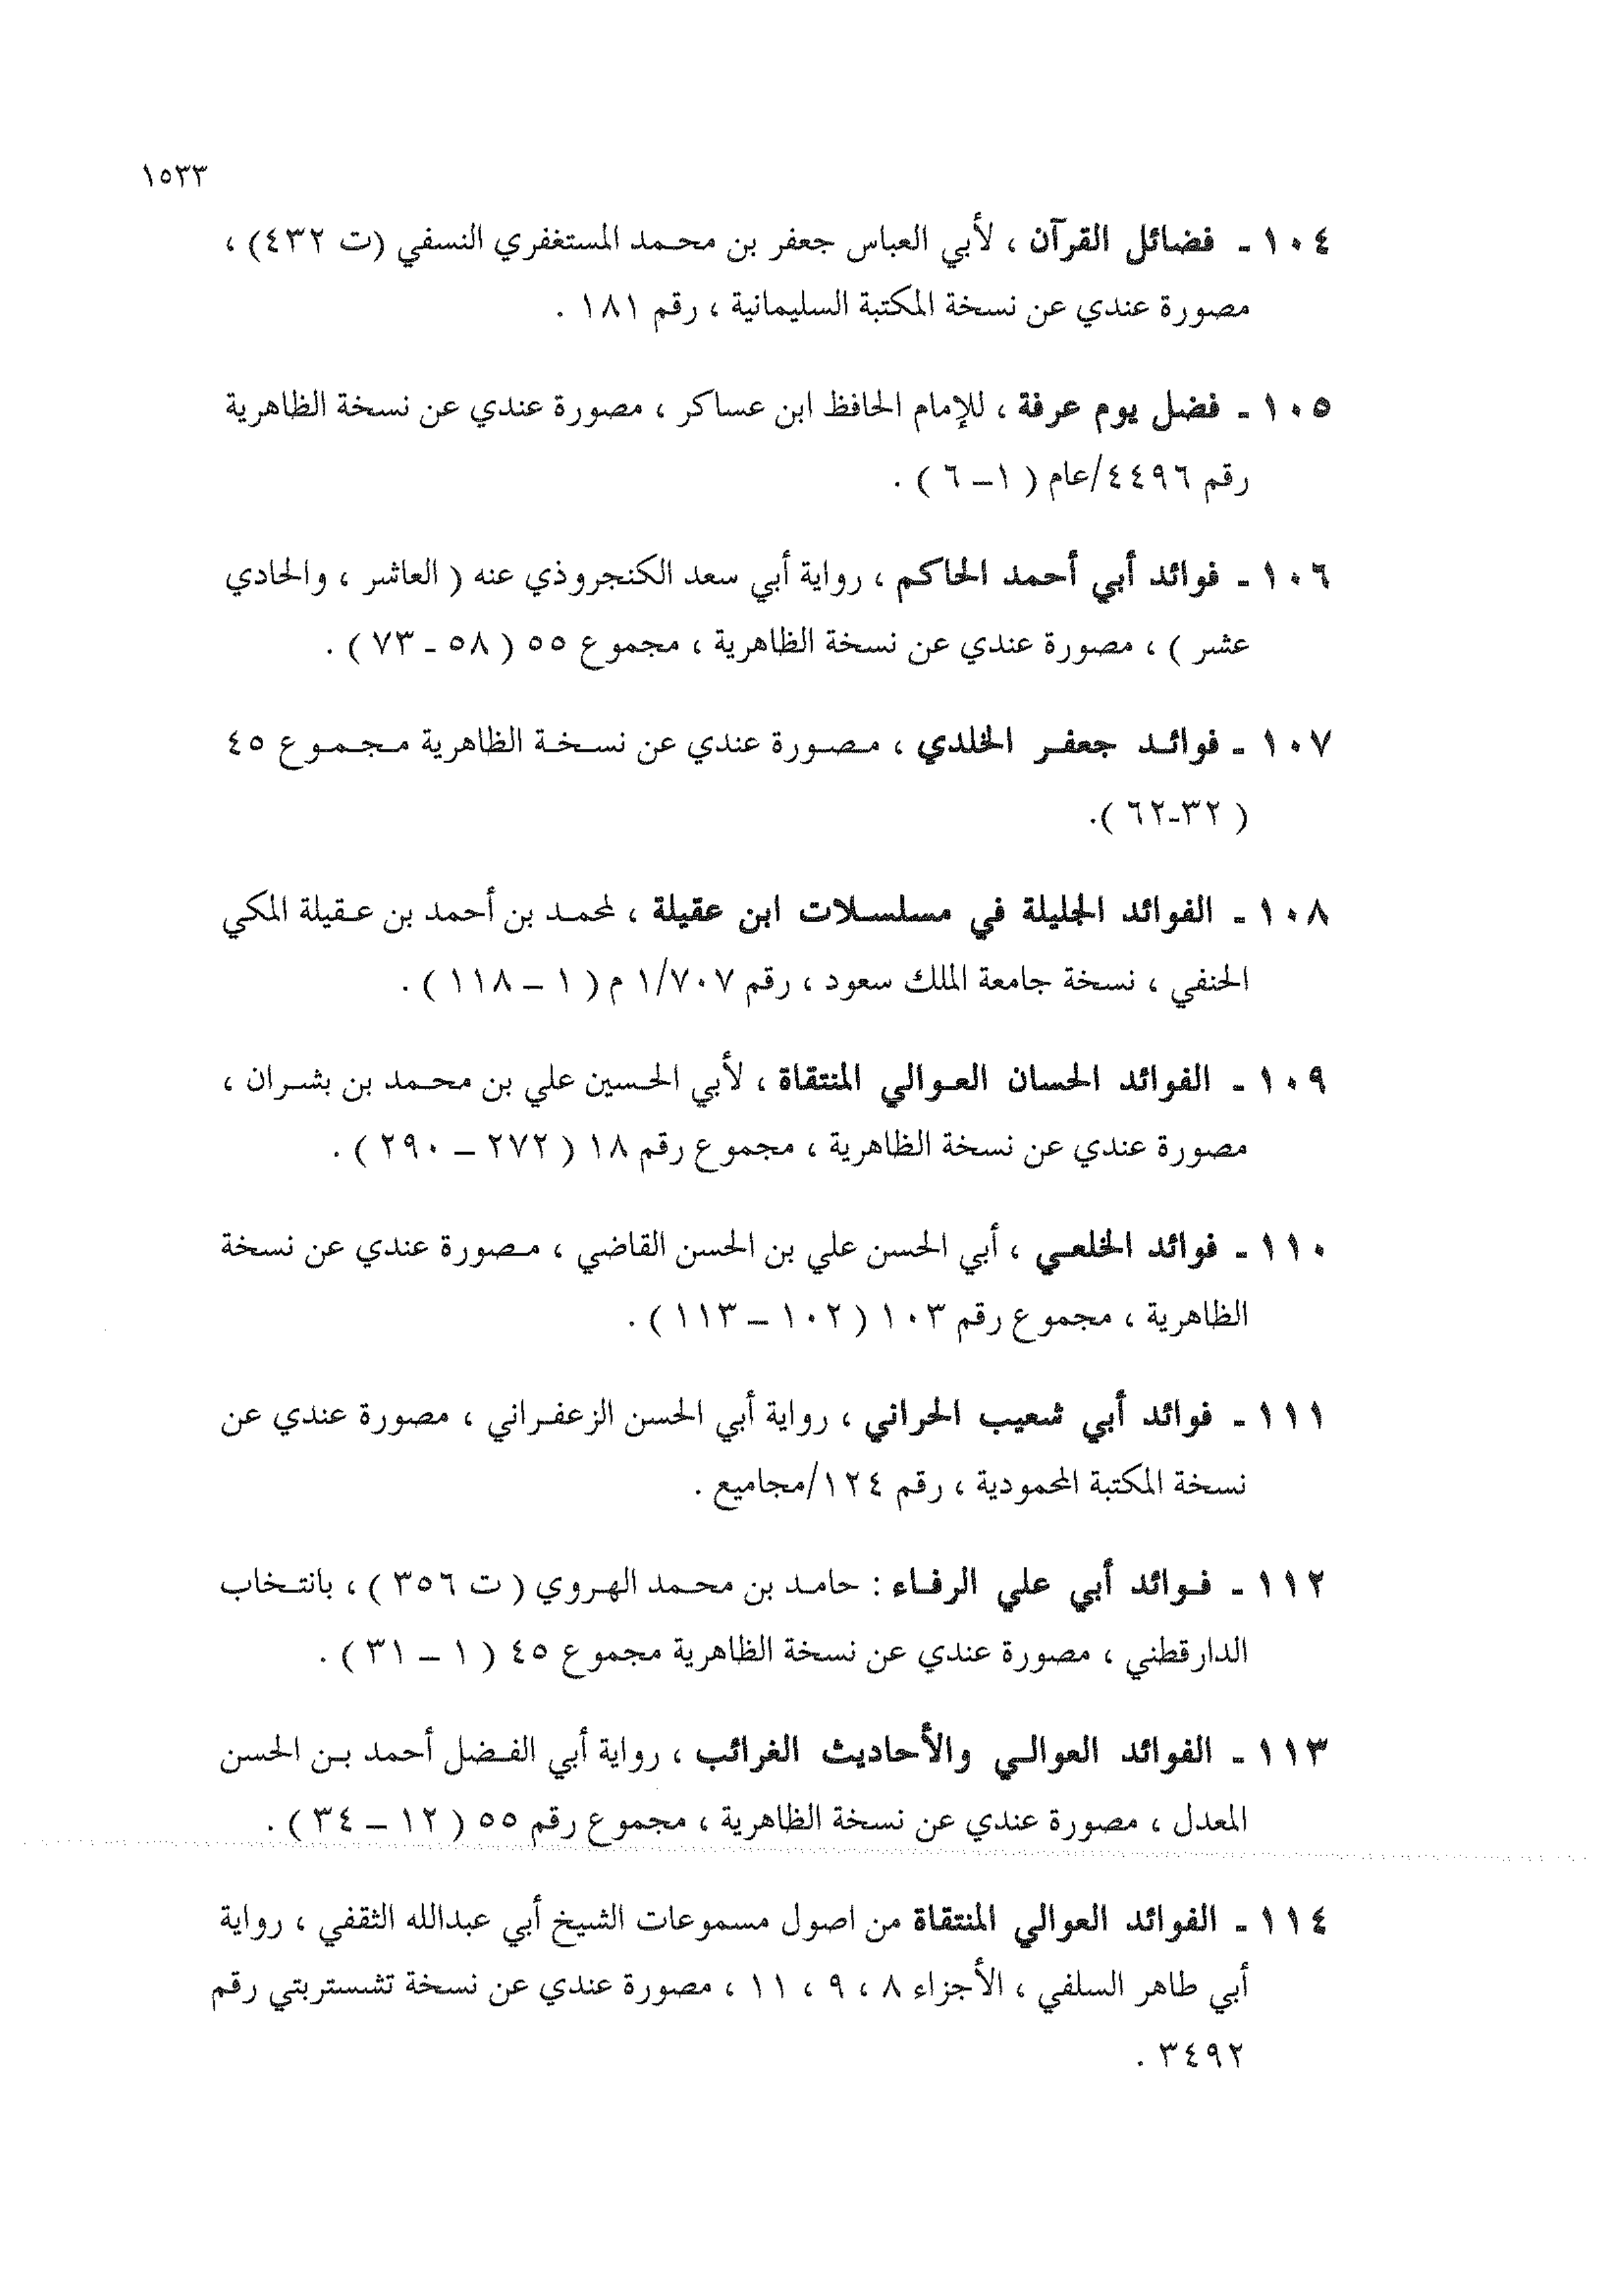 ١٥٣٣
١٠٤ - فضائل القرآن ، لأبي العباس جعفر بن محمد المستغفري النسفي (ت ٤٣٢) ،
مصورة عندي عن نسخة المكتبة السليمانية ، رقم ١٨١ .
١٠٥ - فضل يوم عرفة ، للإمام الحافظ ابن عساكر ، مصورة عندي عن نسخة الظاهرية
رقم ٤٤٩٦/عام ( ١– ٦ ) .
١٠٦ - فوائد أبي أحمد الحاكم ، رواية أبي سعد الكنجروذي عنه ( العاشر ، والحادي
عشر ) ، مصورة عندي عن نسخة الظاهرية ، مجموع ٥٥ ( ٥٨ - ٧٣ ) .
١٠٧ - فوائد جعفر الخلدي ، مصورة عندي عن نسخة الظاهرية مجموع ٤٥
( ٣٢-٦٢ ).
١٠٨ - الفوائد الجليلة في مسلسلات ابن عقيلة ، لمحمد بن أحمد بن عقيلة المكي
الحنفي ، نسخة جامعة الملك سعود ، رقم ١/٧٠٧ م ( ١ – ١١٨ ) .
١٠٩ - الفوائد الحسان العوالي المنتقاة ، لأبي الحسين علي بن محمد بن بشران ،
مصورة عندي عن نسخة الظاهرية ، مجموع رقم ١٨ ( ٢٧٢ – ٢٩٠ ) .
١١٠ - فوائد الخلعي ، أبي الحسن علي بن الحسن القاضي ، مصورة عندي عن نسخة
الظاهرية ، مجموع رقم ١٠٣ ( ١٠٢ – ١١٣ ) .
١١١ - فوائد أبي شعيب الحراني ، رواية أبي الحسن الزعفراني ، مصورة عندي عن
نسخة المكتبة المحمودية ، رقم ١٢٤/مجاميع .
١١٢ - فوائد أبي علي الرفاء : حامد بن محمد الهروي ( ت ٣٥٦ ) ، بانتخاب
الدارقطني ، مصورة عندي عن نسخة الظاهرية مجموع ٤٥ ( ١ – ٣١ ) .
١١٣ - الفوائد العوالي والأحاديث الغرائب ، رواية أبي الفضل أحمد بن الحسن
المعدل ، مصورة عندي عن نسخة الظاهرية ، مجموع رقم ٥٥ ( ١٢ – ٣٤ ) .
١١٤ - الفوائد العوالي المنتقاة من اصول مسموعات الشيخ أبي عبدالله الثقفي ، رواية
أبي طاهر السلفي ، الأجزاء ٨ ، ٩ ، ١١ ، مصورة عندي عن نسخة تشستربتي رقم
٣٤٩٢ .